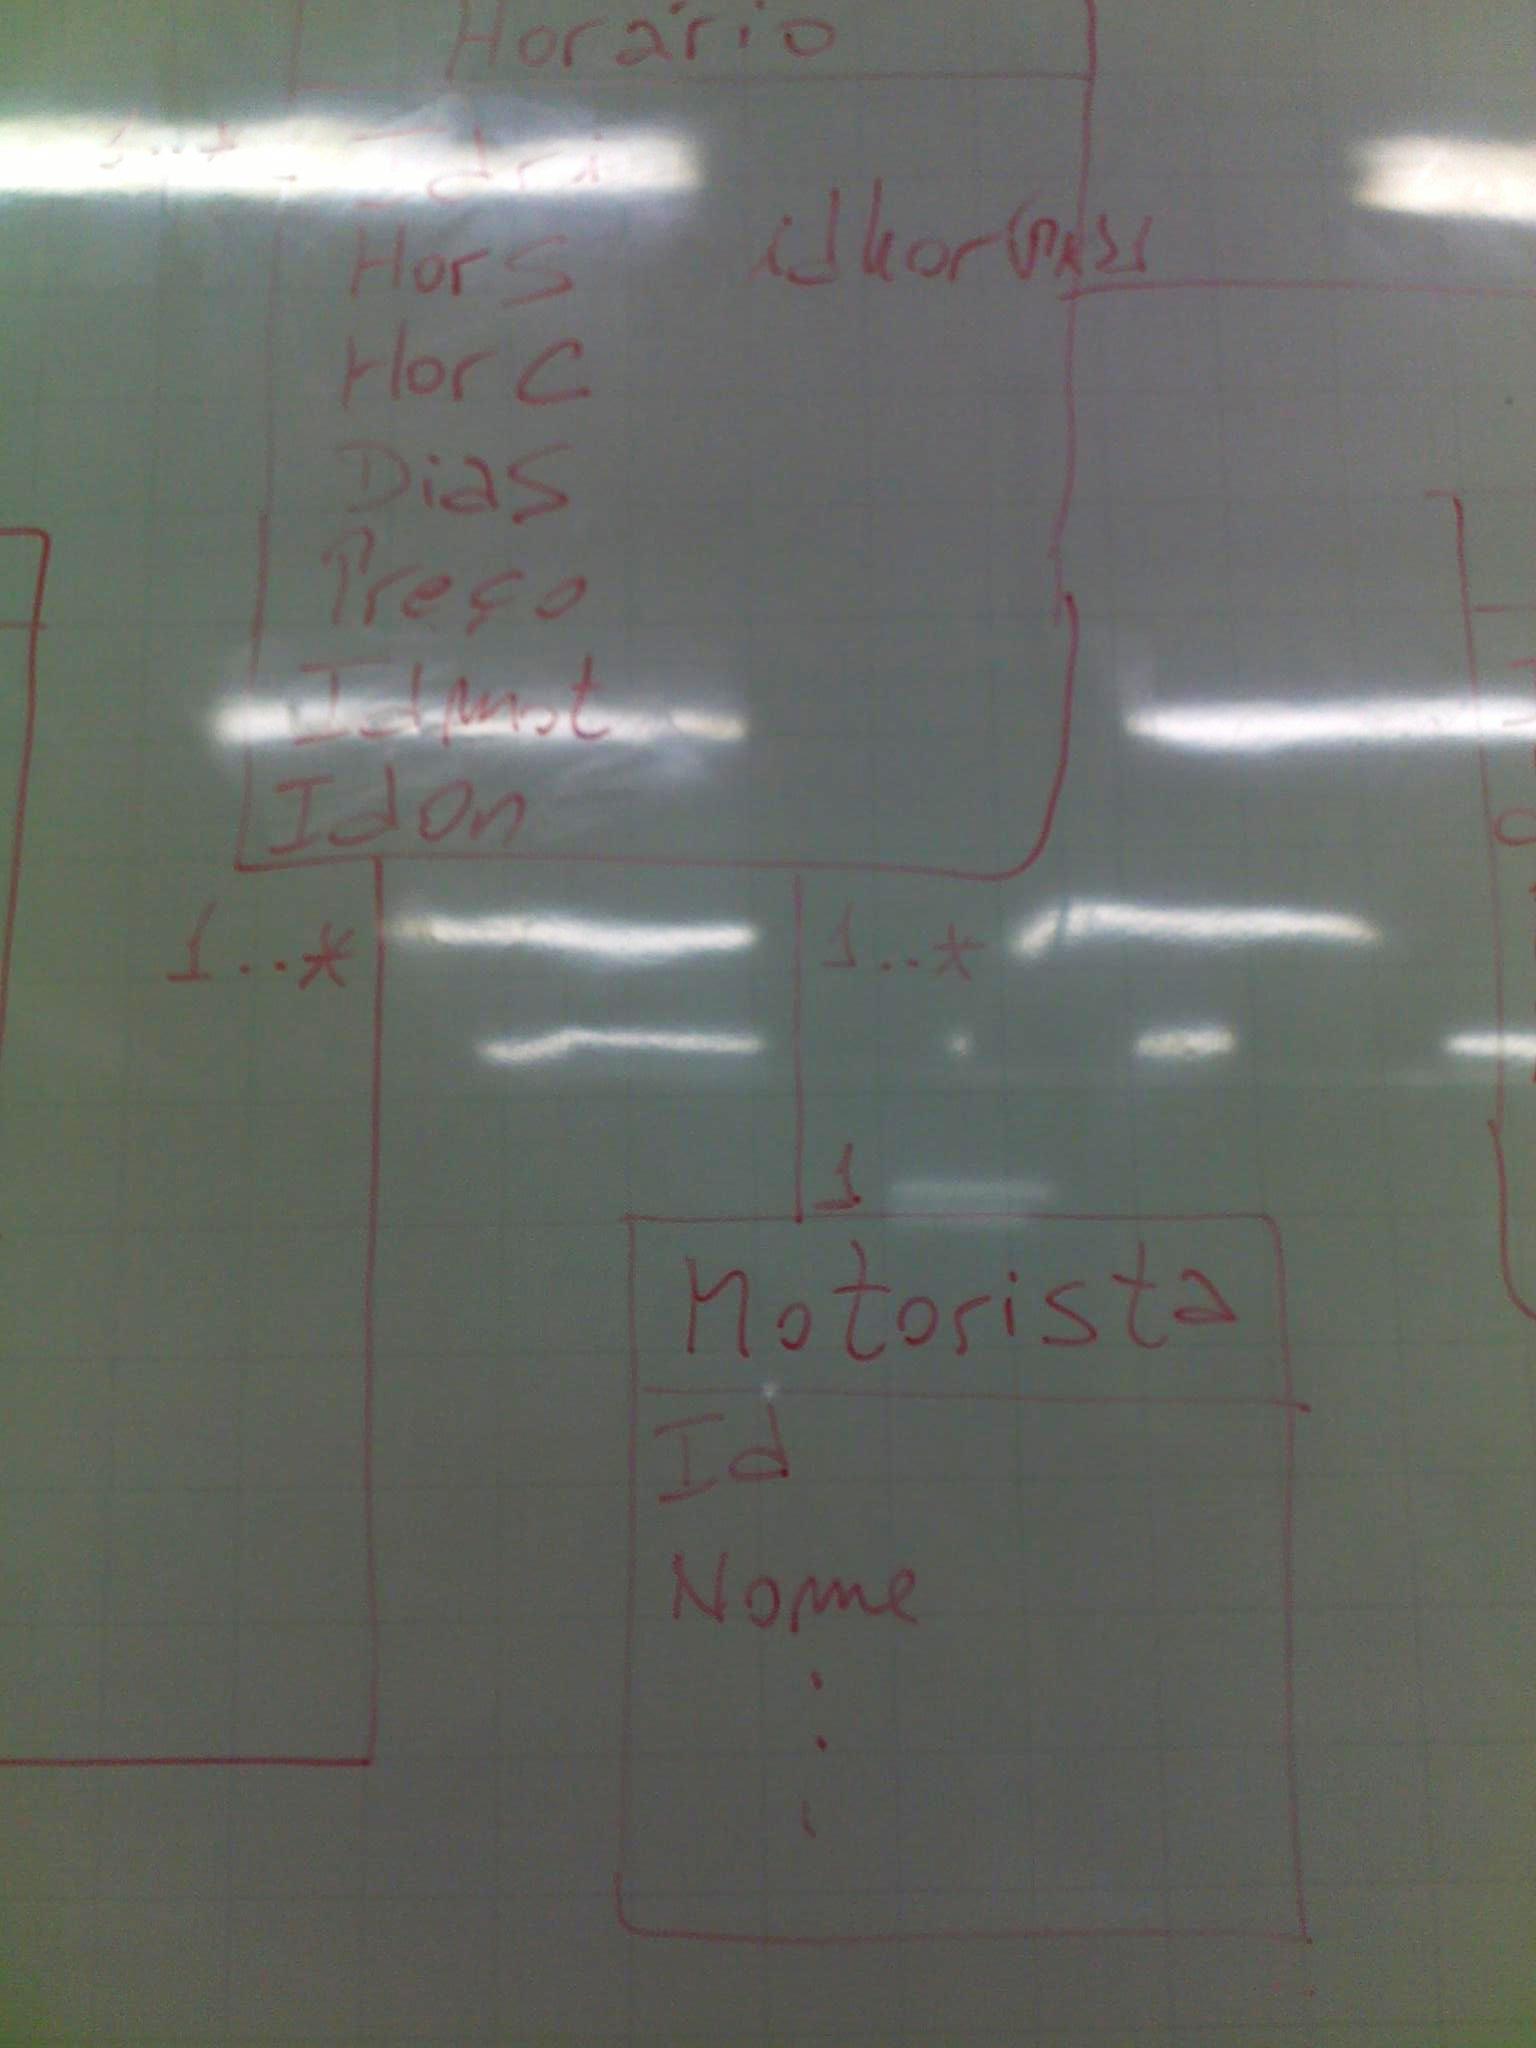 Horário
1..*
HorS
HorC
Dias
Preço
Idmot
IdOn
1..*
1..*
1
Motorista
Id
Nome